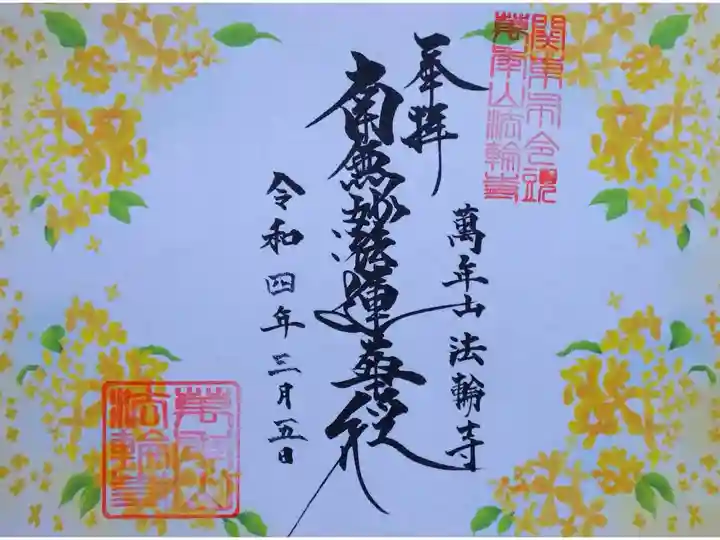 奉拝
萬年山法輪寺
南無妙法蓮華経
令和四年三月五日
萬年山
法輪寺
萬年山法輪寺